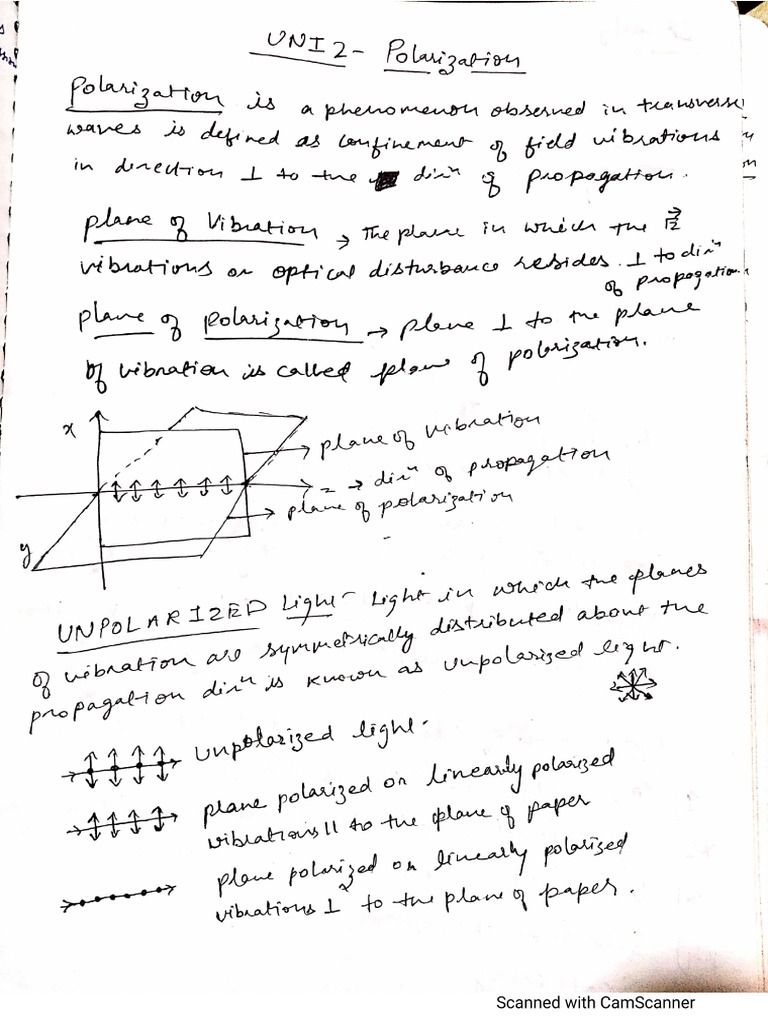 UNI 2 - Polarization
Polarization is a phenomenon observed in transverse
waves is defined as confinement of field vibrations
in direction ⊥ to the dirⁿ of propagation.
plane of Vibration → The plane in which the E⃗
vibrations or optical disturbance resides. ⊥ to dirⁿ
of propagation.
plane of polarization → plane ⊥ to the plane
of vibration is called plane of polarization.
x
plane of vibration
z → dirⁿ of propagation
plane of polarization
y
UNPOLARIZED Light - Light in which the planes
of vibration are symmetrically distributed about the
propagation dirⁿ is known as unpolarized light.
unpolarized light -
plane polarized or linearly polarized
vibrations || to the plane of paper
plane polarized or linearly polarized
vibrations ⊥ to the plane of paper.
Scanned with CamScanner